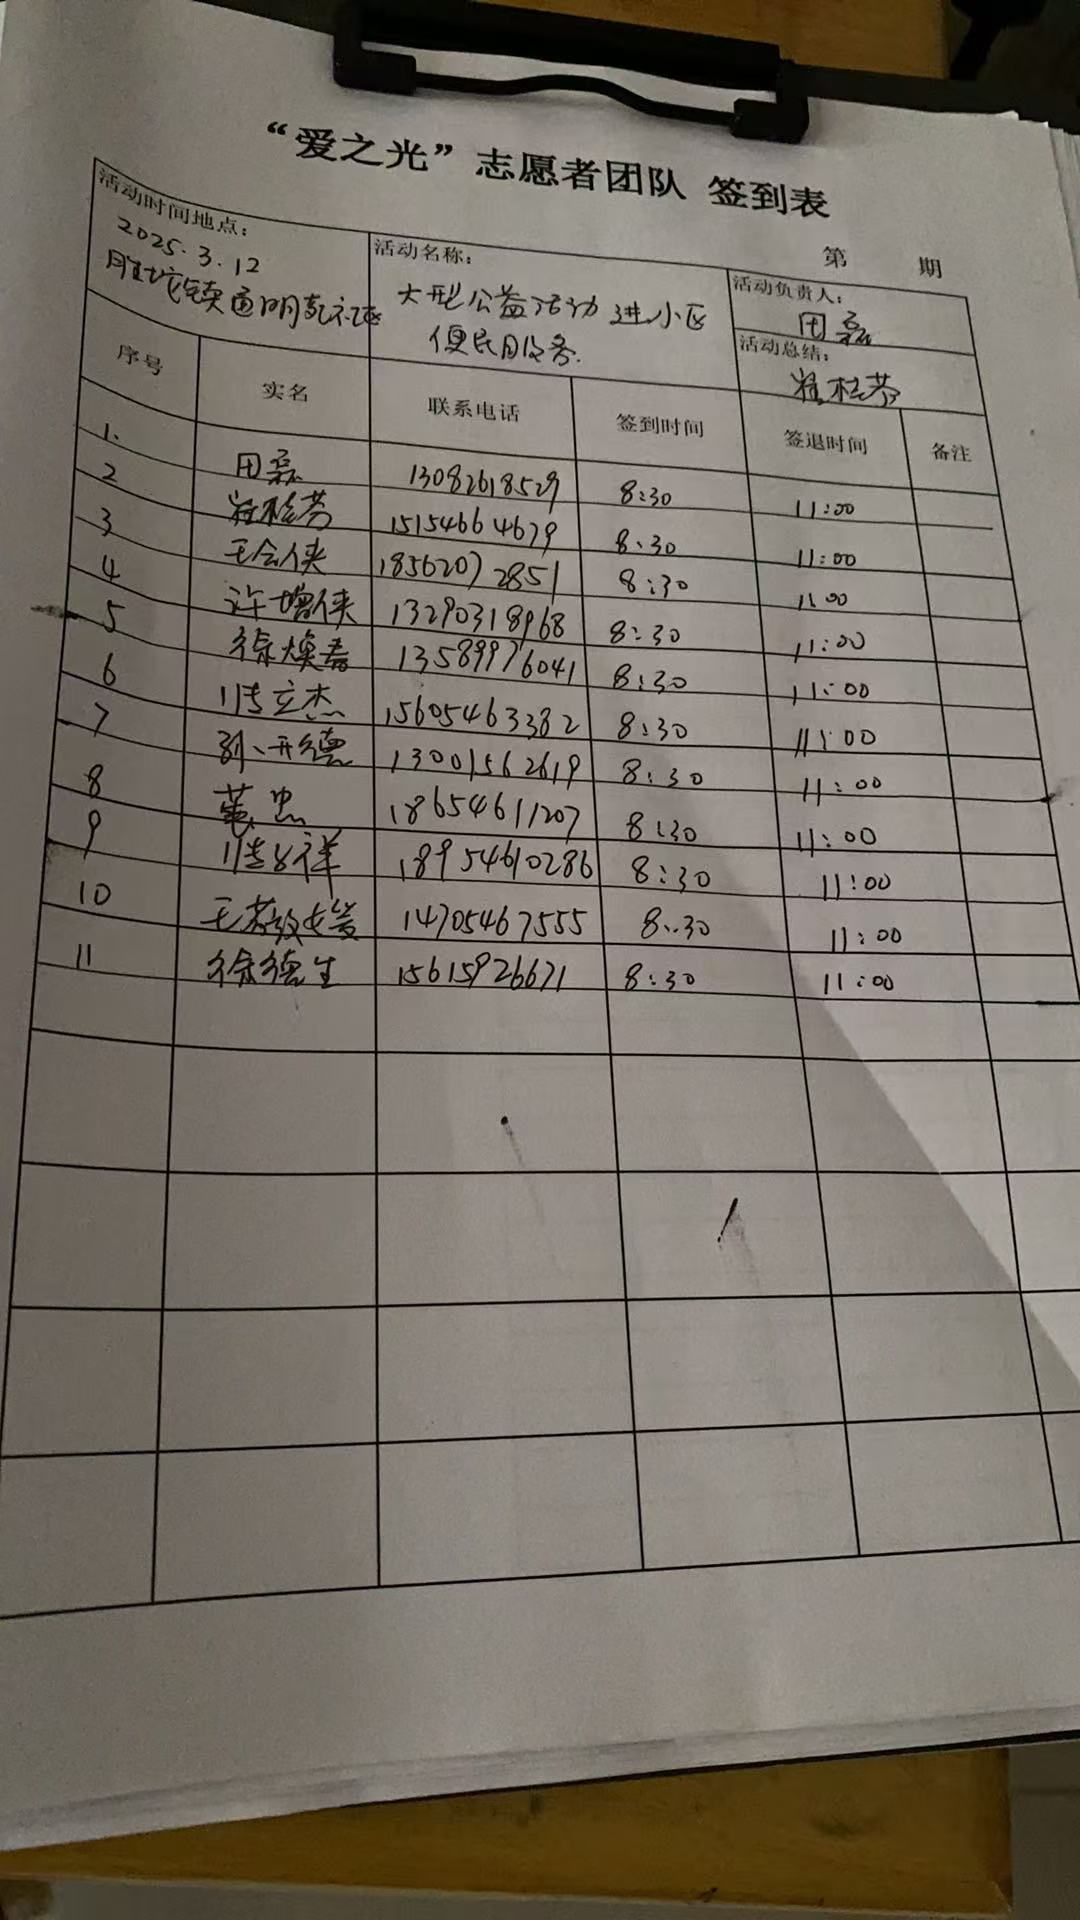 “爱之光”志愿者团队 签到表
第 期
活动时间地点：
2025.3.12
胜坨镇通明社区
活动名称：
大型公益活动 进小区
便民服务.
活动负责人：
田磊
活动总结：
桂芬
序号 实名 联系电话 签到时间 签退时间 备注
1. 田磊 13082618529 8:30 11:00
2 桂芬 15154664679 8:30 11:00
3 王会侠 18562072851 8:30 11:00
4 许增侠 13290318968 8:30 11:00
5 徐焕春 13589976041 8:30 11:00
6 立杰 15605463382 8:30 11:00
7 孙开德 13001562619 8:30 11:00
8 忠 18654611207 8:30 11:00
9 祥 18954610286 8:30 11:00
10 王 14705467555 8:30 11:00
11 徐德生 15615926671 8:30 11:00